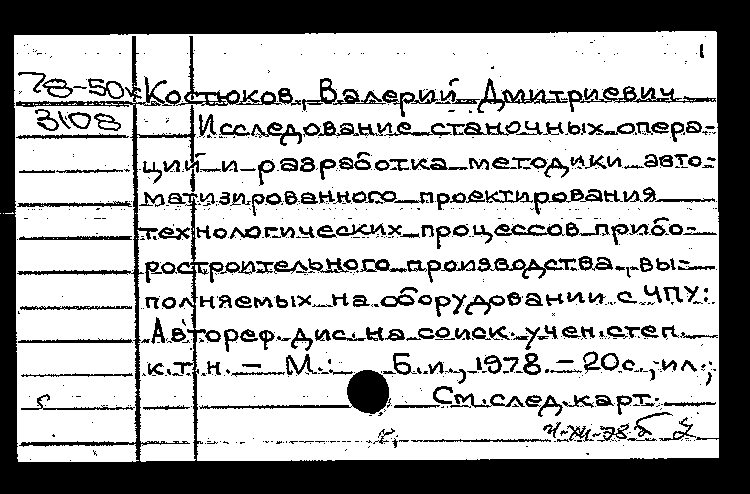 1
78-50к Костюков, Валерий Дмитриевич
3108 Исследование станочных опера-
ций и разработка методики авто-
матизированного проектирования
технологических процессов прибо-
ростроительного производства, вы-
полняемых на оборудовании с ЧПУ:
Автореф. дис. на соиск. учен. степ.
к.т.н. - М.: Б.и., 1978. - 20с., ил.;
См. след. карт.